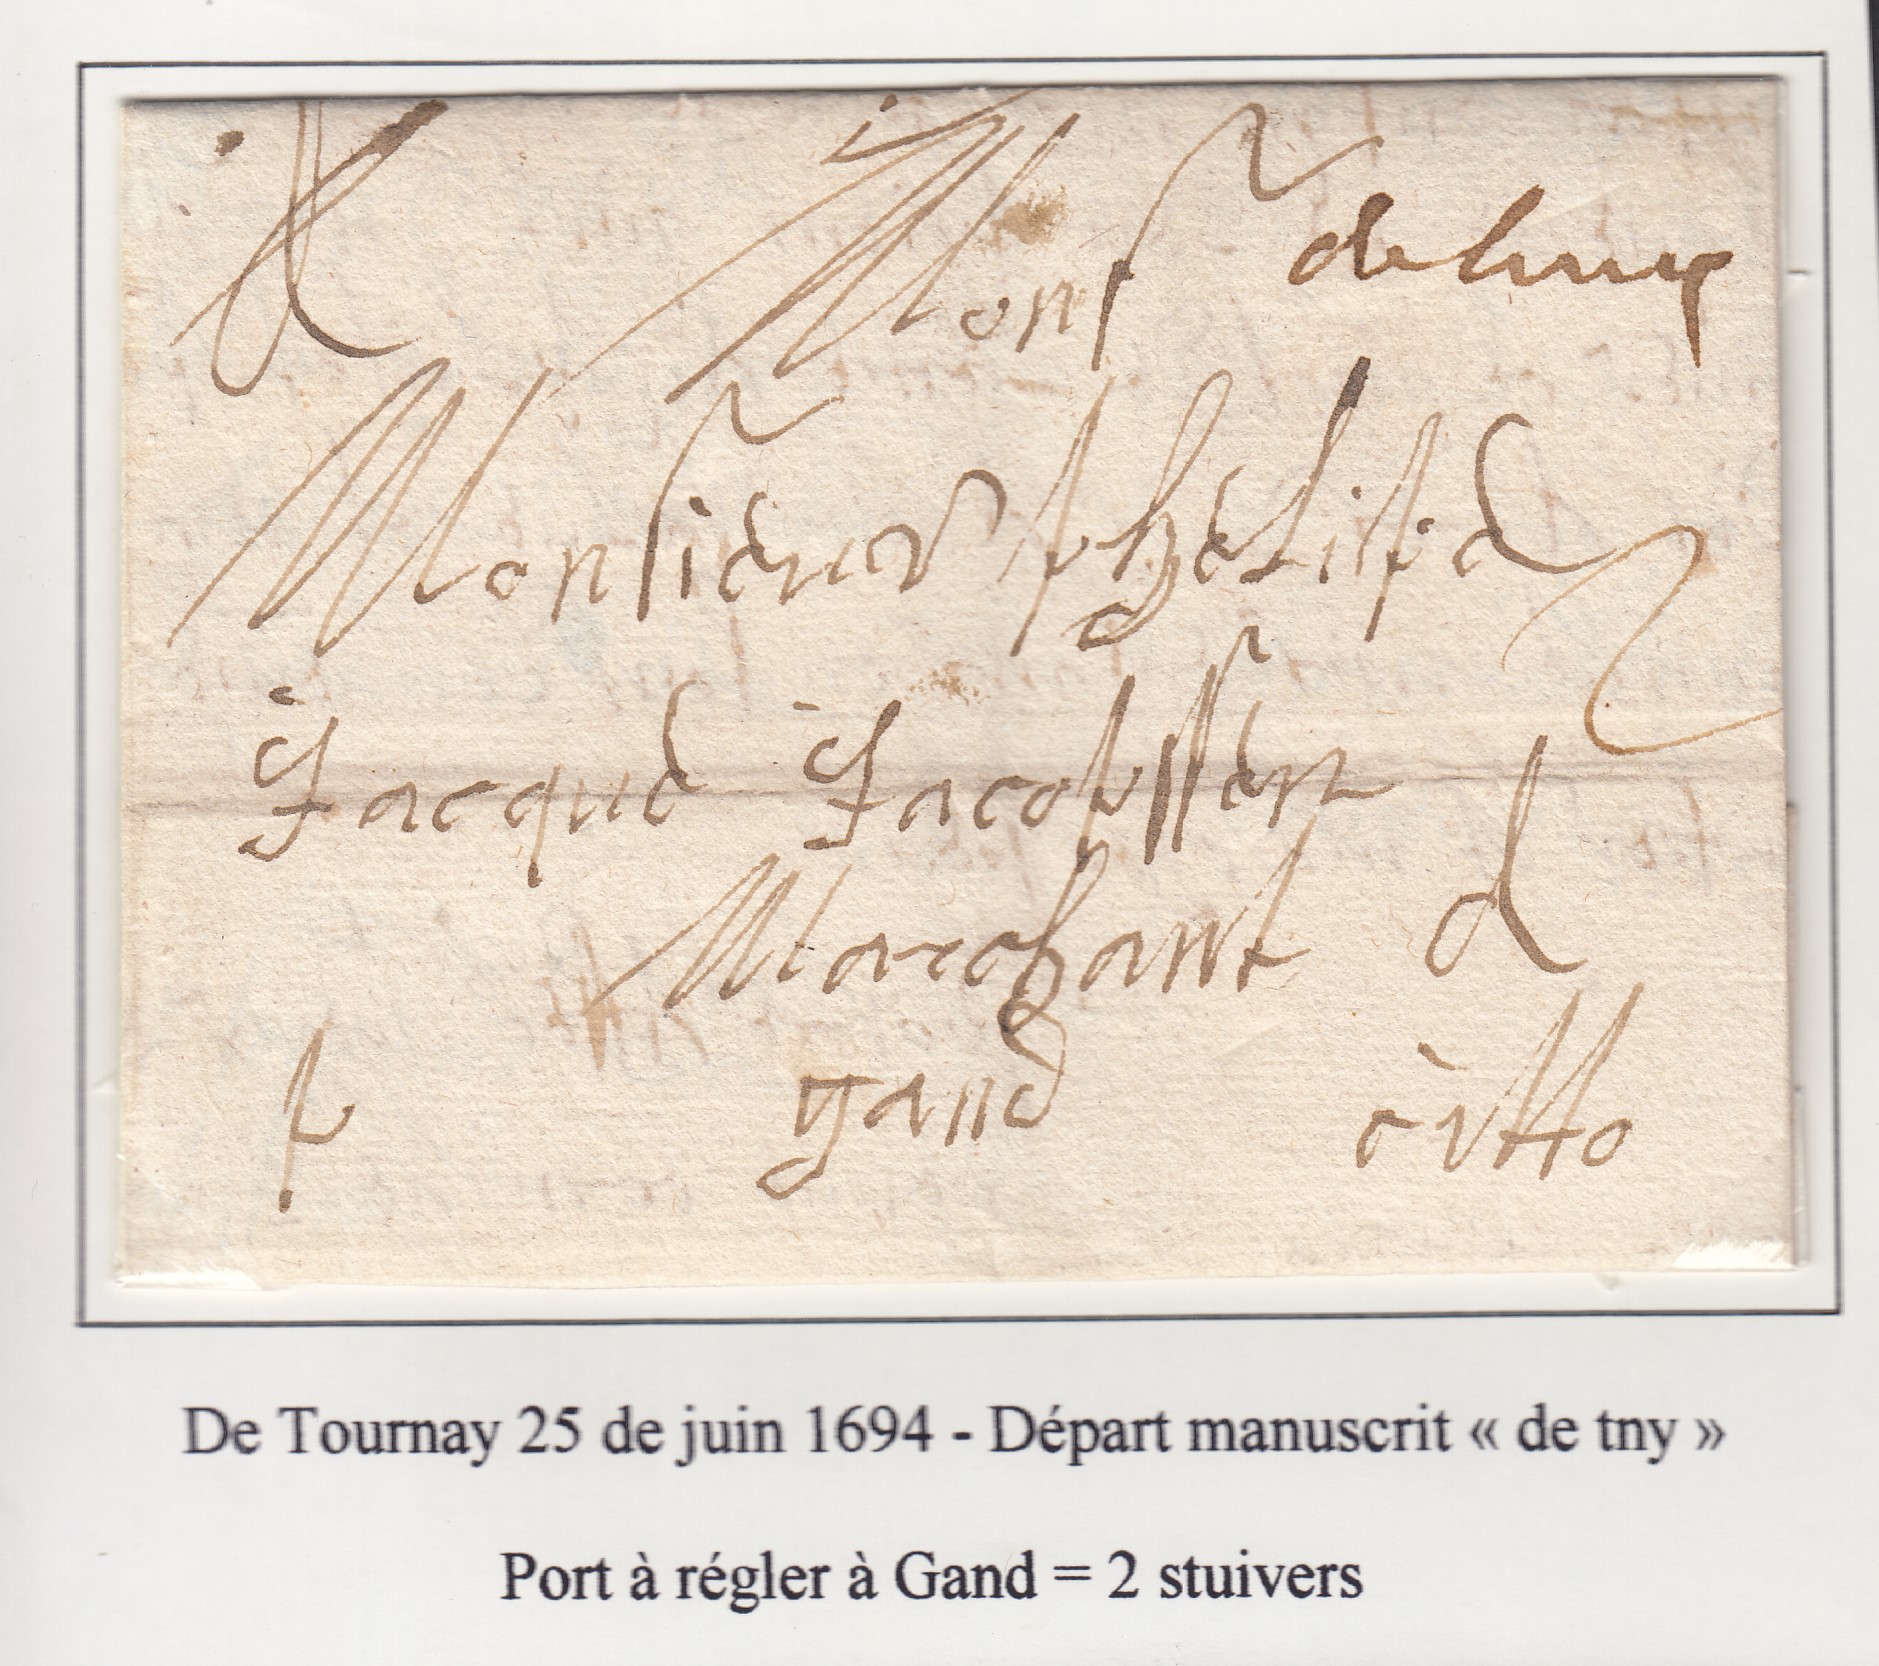 A Mons
de tny
Monsieur phelipe
Jacque Jacopssen
Marchant A
p gand citto
De Tournay 25 de juin 1694 - Départ manuscrit « de tny »
Port à régler à Gand = 2 stuivers